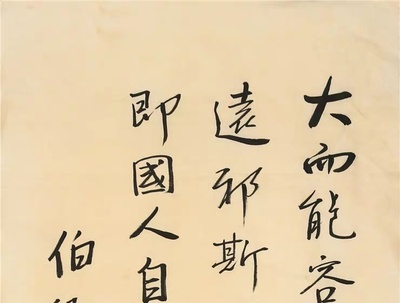 大而能容
遠邪斯
即國人自
伯